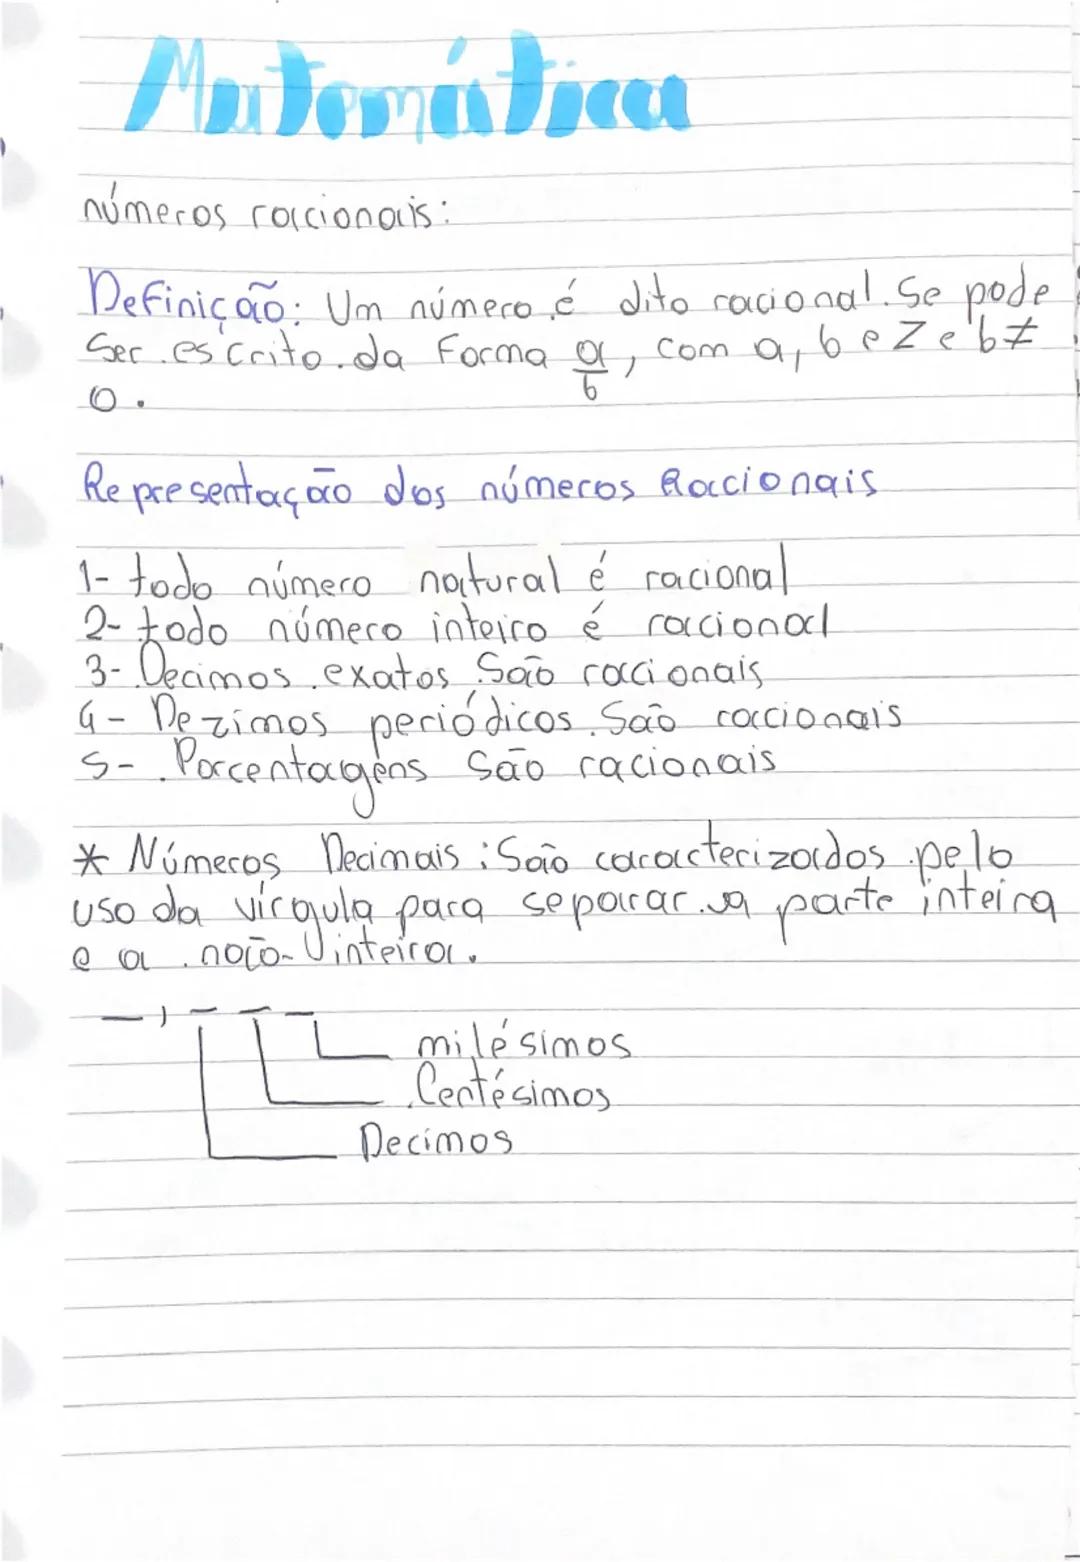 Matemática
números racionais:
Definição: Um número é dito racional. Se pode
Ser escrito da Forma a/b, com a, b e Z e b ≠
0.
Representação dos números Racionais
1- todo número natural é racional
2- todo número inteiro é racional
3- Decimos exatos São racionais
4- Dezimos periódicos São racionais
5- Porcentagens São racionais
* Números Decimais: São caracterizados pelo
uso da vírgula para separar a parte inteira
e a não-inteira.
_, _ _ _
milésimos
Centésimos
Decimos